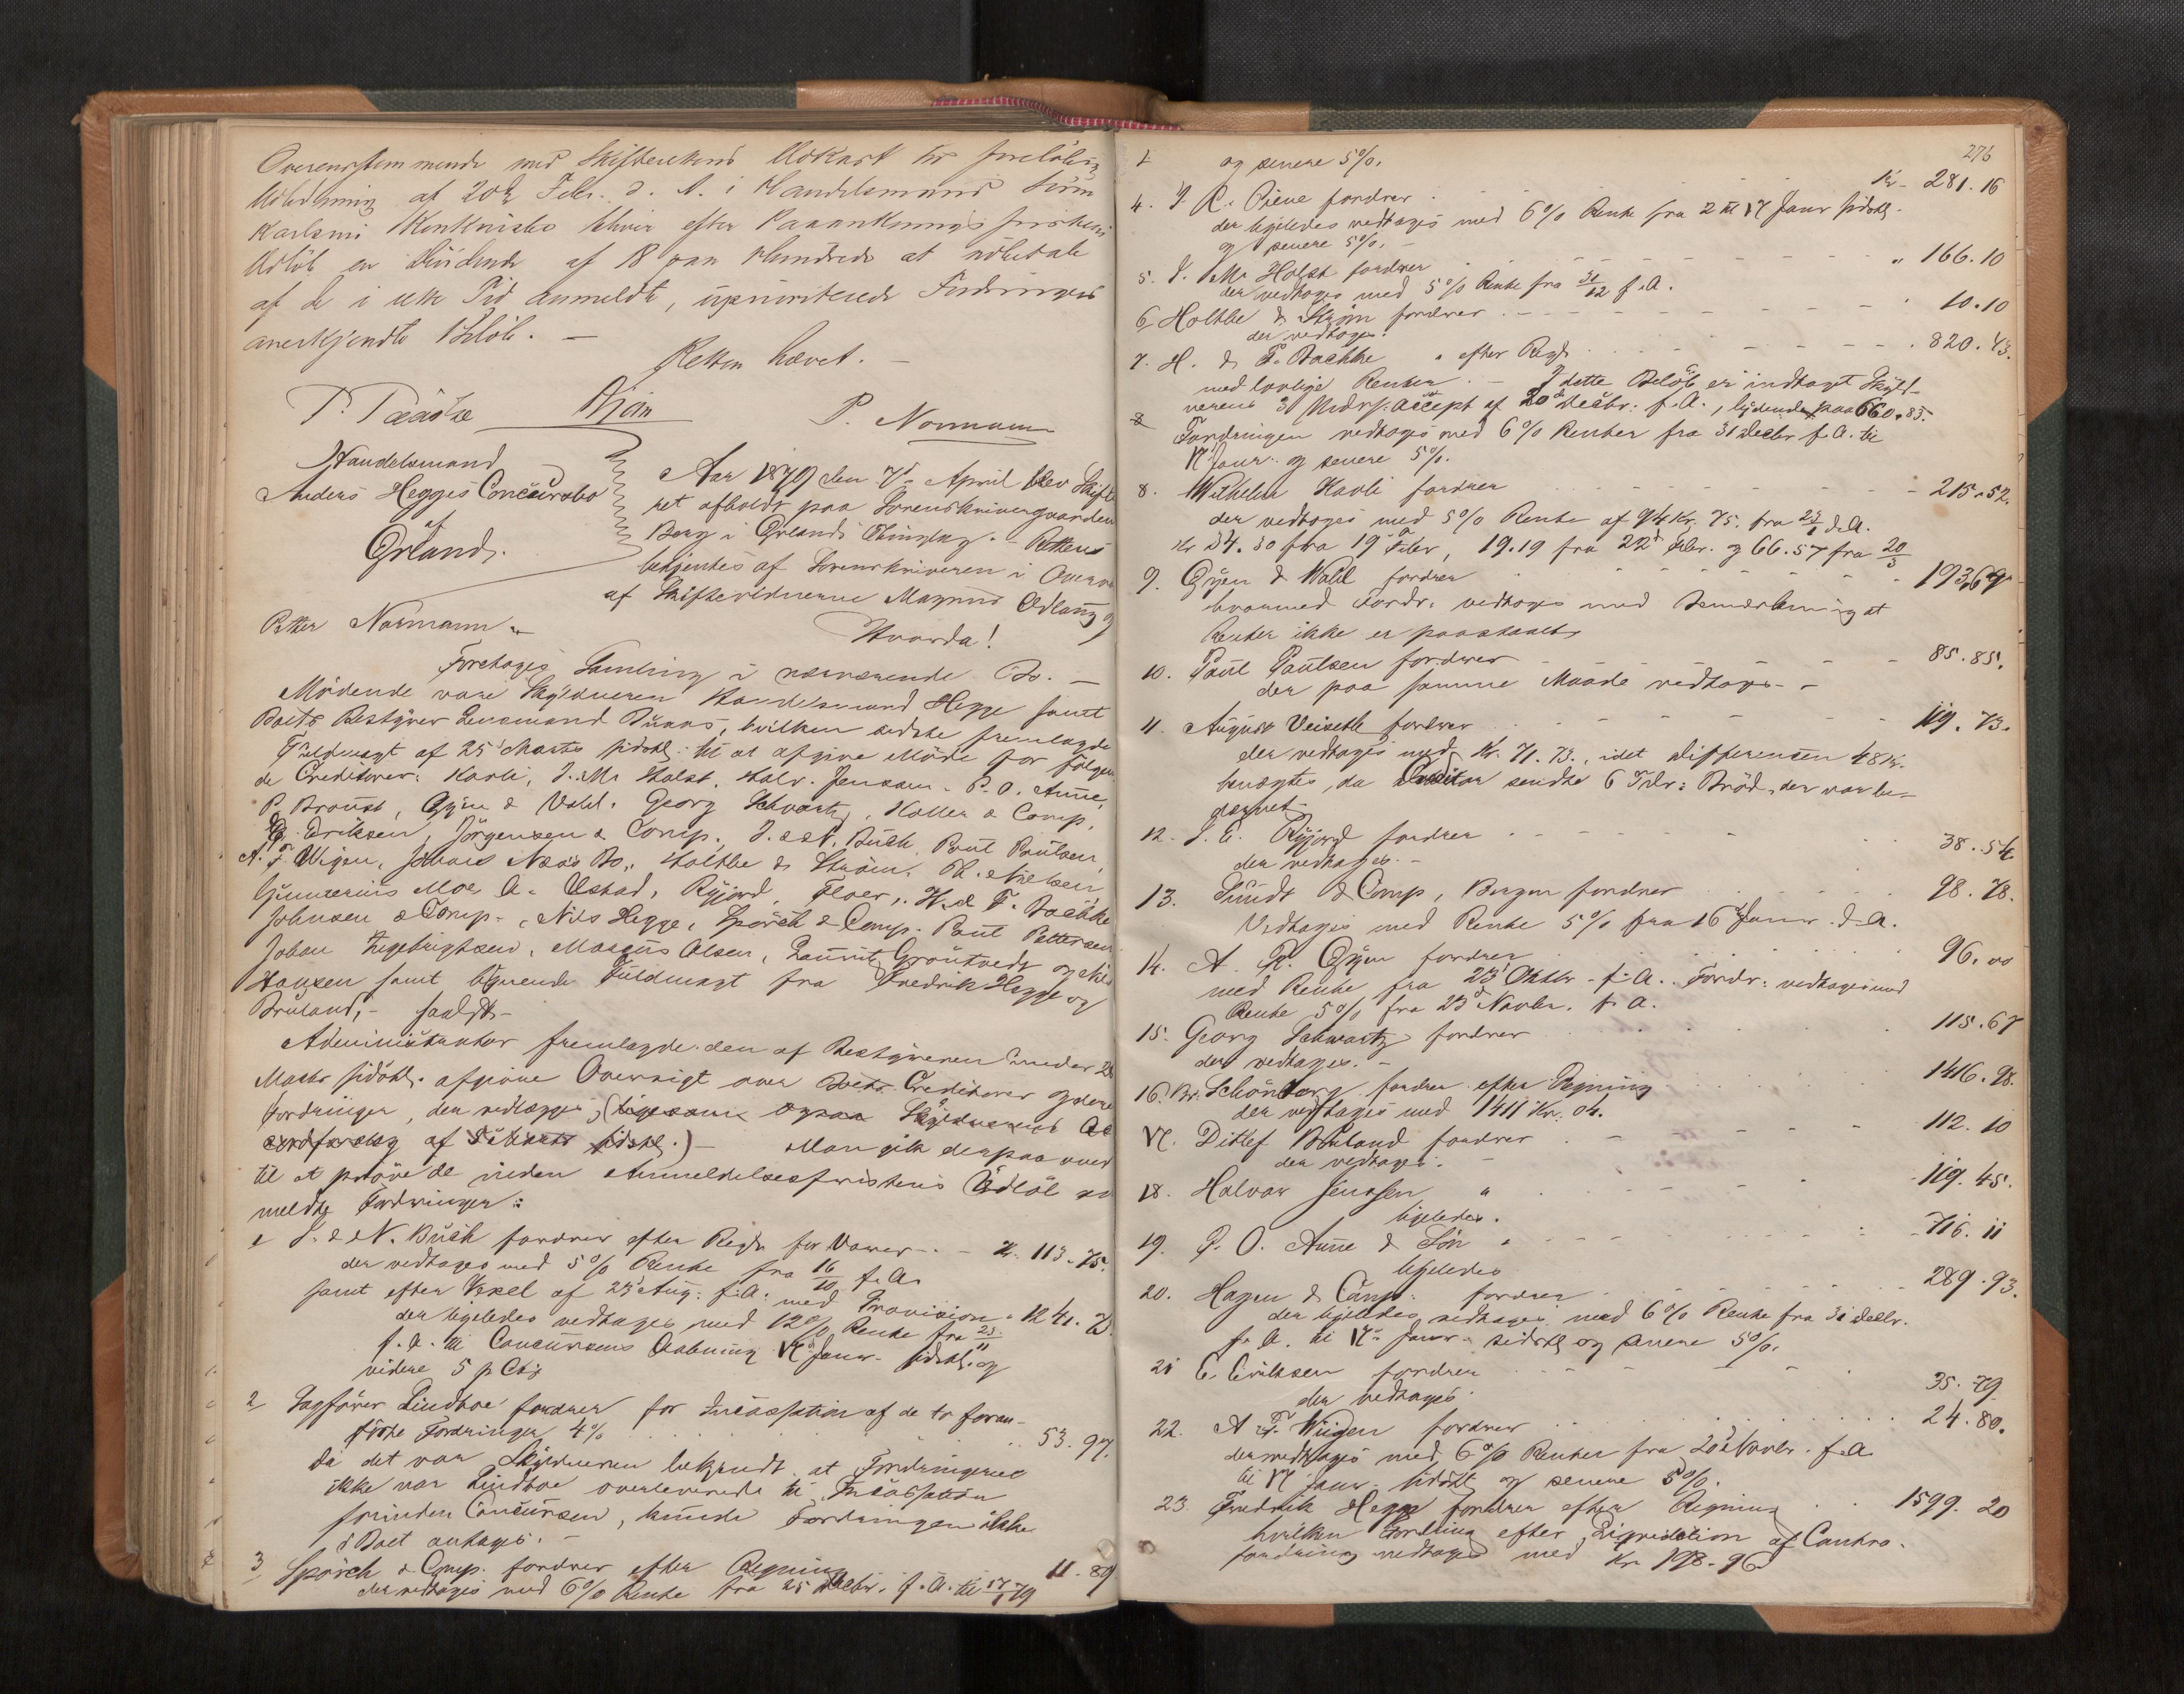 Overensstemmende med Skifterettens Udkast til foreløbig
Udlodning af 20de Febr. d. A. i Handelsmand
Karlsens Konkursbo bliver efter Paaankningsfristens
Udløb en Dividende af 18 paa Hundrede at udbetale
af de i rette Tid anmeldte, uprioriterede Fordringers
anerkjendte Beløb. –
Retten hævet. –
P. Normann
Handelsmand
Anders Hegges Concursbo
af
Ørland.
Aar 1879 den 7de April blev Skifte
ret afholdt paa Sorenskrivergaarden
Berg i Ørlands Thinglag. – Rettens
betjentes af Sorenskriveren i Overvær
af Skiftevidnerne Magnus Ødlang og
Petter Normann
Hvorda!
Foretoges Samling i nærværende Bo. –
Mødende vare Skyldneren Handelsmand Hegge samt
Boets Bestyrer Lensmand, hvilken sidste fremlagde
Fuldmagt af 25 Marts sidstl. til at afgive Møde for følgen
de Creditorer: Kavli, J. M. Holst, Halv. Jenssen, P. O. Aune,
P. Broust, Øyen & Wahl, Georg Schwartz, Koller & Comp,
E. Eriksen, Jørgensen & Comp, J. & N. Buch, Paul Paulsen,
A. F. Wigen, Næss Bo, Holtbe & Strøm, Th. Nielsen,
Gunnerius Moe, A. Ustad, Ryjord, Floer, H. & F. Bachke
Johnsen & Comp., Nils Hegge, Spørck & Comp. Paul Pettersen
Johan Ingebrigtsen, Marcus Olsen, Laurits Grøntvedt og Nils
Hansen samt lignende Fuldmagt fra Fredrik Hegge og
Bruland, –
Administrator fremlagde den af Bestyreren under 28
Marts sidstl. afgivne Oversigt over Boets Creditorer og deres
Fordringer, der vedlægges, (ligesom ogsaa Skyldnerens
af sidstl.) – Man gik derpaa over
til at prøve de inden Anmeldelsesfristens Udløb an
meldte Fordringer:
1 J. & N. Buch fordrer efter Regn. for Varer - - Kr. 113.75.
der vedtages med 5% Rente fra 16/10 f. A.
samt efter Vexel af 23 Aug. f. A. med Provision " 1241.73.
der ligeledes vedtages med 12% Rente fra 23/11
f. A. til Concursens Aabning 17 Janr. sidstl. og
videre 5 p Ct.
2 Sagfører Lindboe fordrer for Incassation af de to foran-
førte Fordringer 4% . . . 53.97.
Da det var Skyldneren bekjendt at Fordringerne
ikke var Lindboe overleverede til Incassation
forinden Concursen, kunde Fordringen ikke
i Boet antages. –
3 Spørck & Comp. fordrer efter Regning 11.89
der vedtages med 6% Rente fra 25 Decbr. f. A. til 17/1 79
276
og senere 5%.
4. J. R. Piene fordrer . Kr. 281.16
der ligeledes vedtages med 6% Rente fra 2 til 17 Janr sidstl.
og senere 5%. –
5. J. M. Holst fordrer " 166.10
der vedtages med 5% Rente fra 31/12 f. A.
6, Holtbe & Strøm fordrer . - - - 10.10
der vedtages.
7. H. & F. Bachke " efter Regn. 820.43.
med lovlige Renter. – I dette Beløb er indtaget Skyld-
nerens 3 Mdrs. Accept af 20de Decbr: f. A., lydende paa 660.83.
Fordringen vedtages med 6% Renter fra 31 Decbr f. A. til
17 Janr. og senere 5%.
8. Wilhelm Kavli fordrer - - - 215.52.
der vedtages med 5% Rente af 94 Kr. 75. fra 23/1 d. A.
Kr 34.30 fra 19de Febr, 19.19 fra 22de Febr. og 66.57 fra 20/3
9. Øyen & Wahl fordrer 193.69
hvormed Fordr. vedtages med Bemærkning at
Renter ikke er paastaaet
10. Paul Paulsen fordrer 85.85.
der paa samme Maade vedtages - -
11. August Veiseth fordrer 119.73.
der vedtages med Kr. 71.73., idet Differencen 48 Kr.
benegtes, da Creditor sendte 6 Tdr: Brød, der var be-
dærvet
12. J. E. Ryjord fordrer 38.54
der vedtages. –
13. Sundt & Comp, Bergen fordrer 98.78.
Vedtages med Rente 5% fra 16de Janr. d. A.
14. A. R. Øyen fordrer 96.00
med Rente fra 23 Oktbr. f. A. Fordr: vedtages med
Rente 5% fra 23de Novbr. f. A.
15. Georg Schwartz fordrer 115.67
der vedtages. –
16. Br. Schönberg fordrer efter Regning 1416.98.
der vedtages med 1411 Kr. 04.
17. Ditlef Bruland fordrer 112.10
der vedtages. –
18. Halvor Jenssen " 119.45.
ligeledes.
19. P. O. Aune & Søn " 716.11
ligeledes
20. Hagen & Comp. fordrer 289.93.
der ligeledes vedtages med 6% Rente fra 31 Decbr.
f. A. til 17de Janr. sidstl og senere 5%.
21 E. Eriksen fordrer 35.79
der vedtages.
22. A. F. Wiigen fordrer 24.80.
der vedtages med 6% Renter fra 20de Novbr. f. A.
til 17 Janr. sidstl og senere 5%.
23. Fredrik Hegge fordrer efter Regning 1599.20
hvilken Fordring efter Liqvidation af Contra-
fordring vedtages med Kr. 198.96